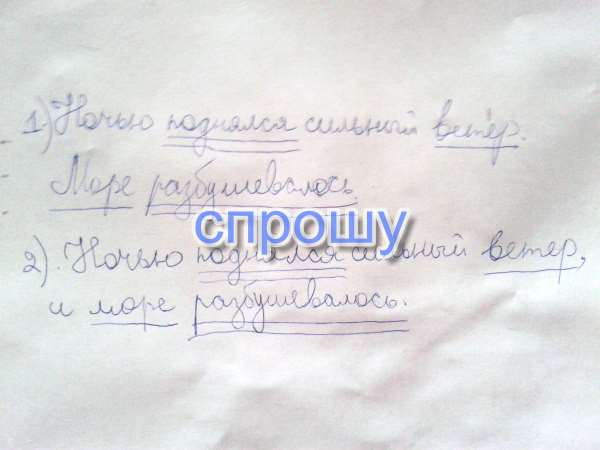 1) Ночью поднялся сильный ветер.
Море разбушевалось
спрошу
2). Ночью поднялся сильный ветер,
и море разбушевалось.